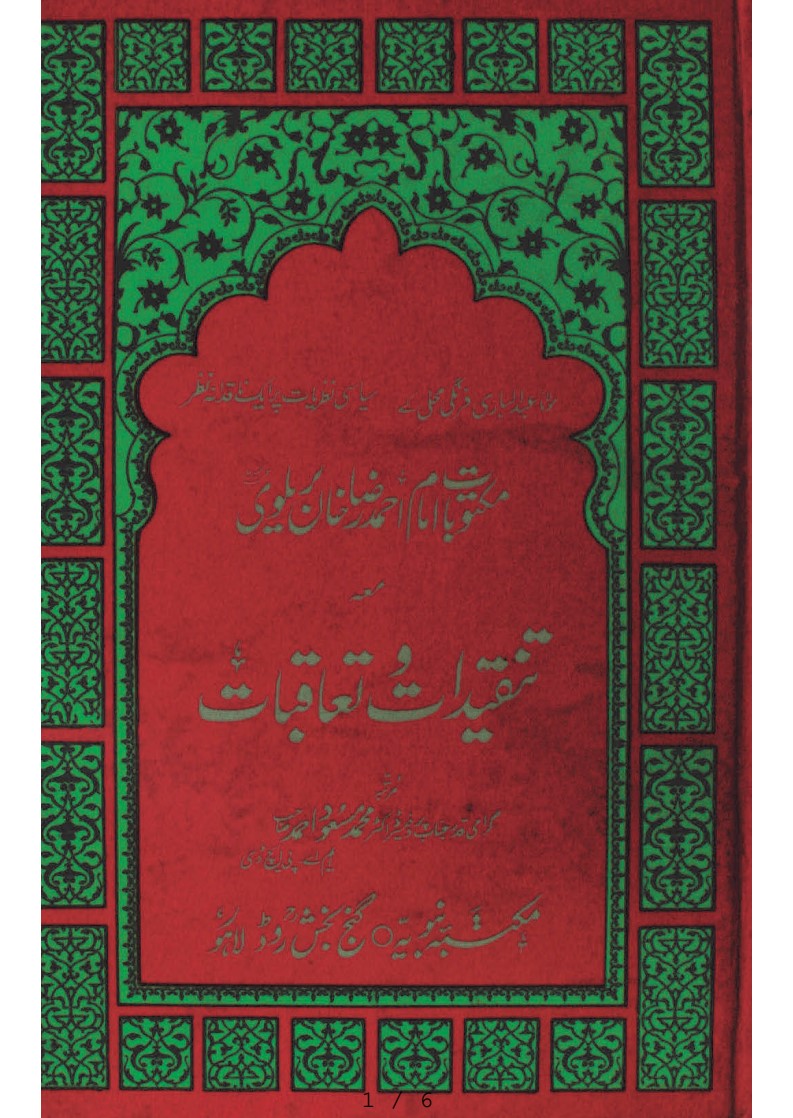 مولانا عبدالباری فرنگی محلی کے سیاسی نظریات پر ایک ناقدانہ نظر
مکتوبات امام احمد رضا خان بریلوی
معہ
تنقیدات و تعاقبات
مرتبہ
گرامی قدر جناب پروفیسر ڈاکٹر محمد مسعود احمد صاحب
ایم اے پی ایچ ڈی
مکتبہ نبویہ ○ گنج بخش روڈ لاہور
1 / 6